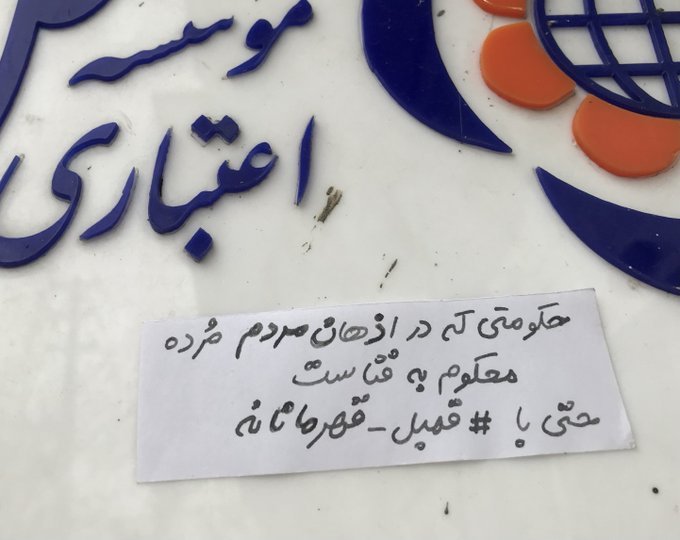 موسسه
اعتباری
حکومتی که در اذهان مردم مُرده
محکوم به فناست
حتی با #قمبل_قهرمانانه